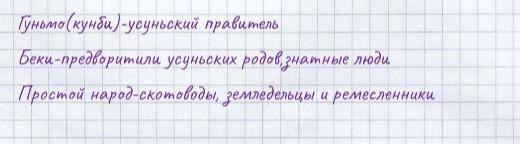 Гуньмо(кунби)-усуньский правитель
Беки-предворитили усуньских родов,знатные люди
Простой народ-скотоводы, земледельцы и ремесленники